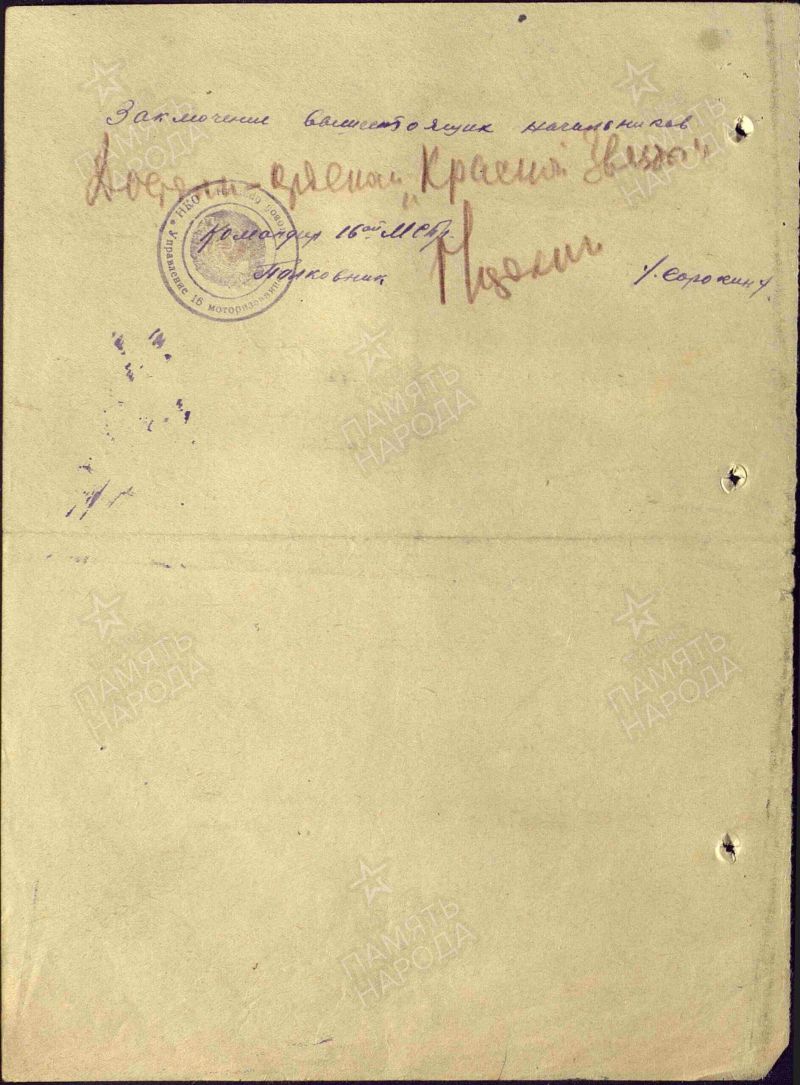 Заключение вышестоящих начальников
Достоин ордена „Красной Звезды"
Командир 16ой МСбр.
Полковник /Сорокин/.
НКО
Управление 16 моторизованн
ПАМЯТЬ НАРОДА
ПАМЯТЬ НАРОДА
ПАМЯТЬ НАРОДА
ПАМЯТЬ НАРОДА
ПАМЯТЬ НАРОДА
ПАМЯТЬ НАРОДА